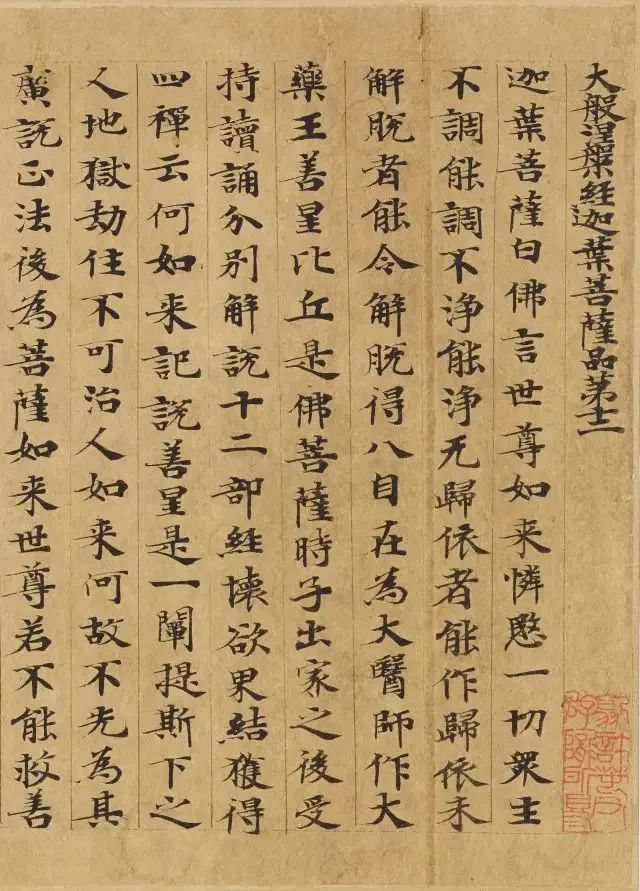 大般涅槃経迦葉菩薩品第十二
迦葉菩薩白佛言世尊如来憐愍一切衆生
不調能調不浄能浄无歸依者能作歸依未
解脱者能令解脱得八自在為大醫師作大
藥王善星比丘是佛菩薩時子出家之後受
持讀誦分别解說十二部経壊欲界結獲得
四禪云何如来記說善星是一闡提斯下之
人地獄劫住不可治人如来何故不先為其
廣說正法後為菩薩如来世尊若不能救善